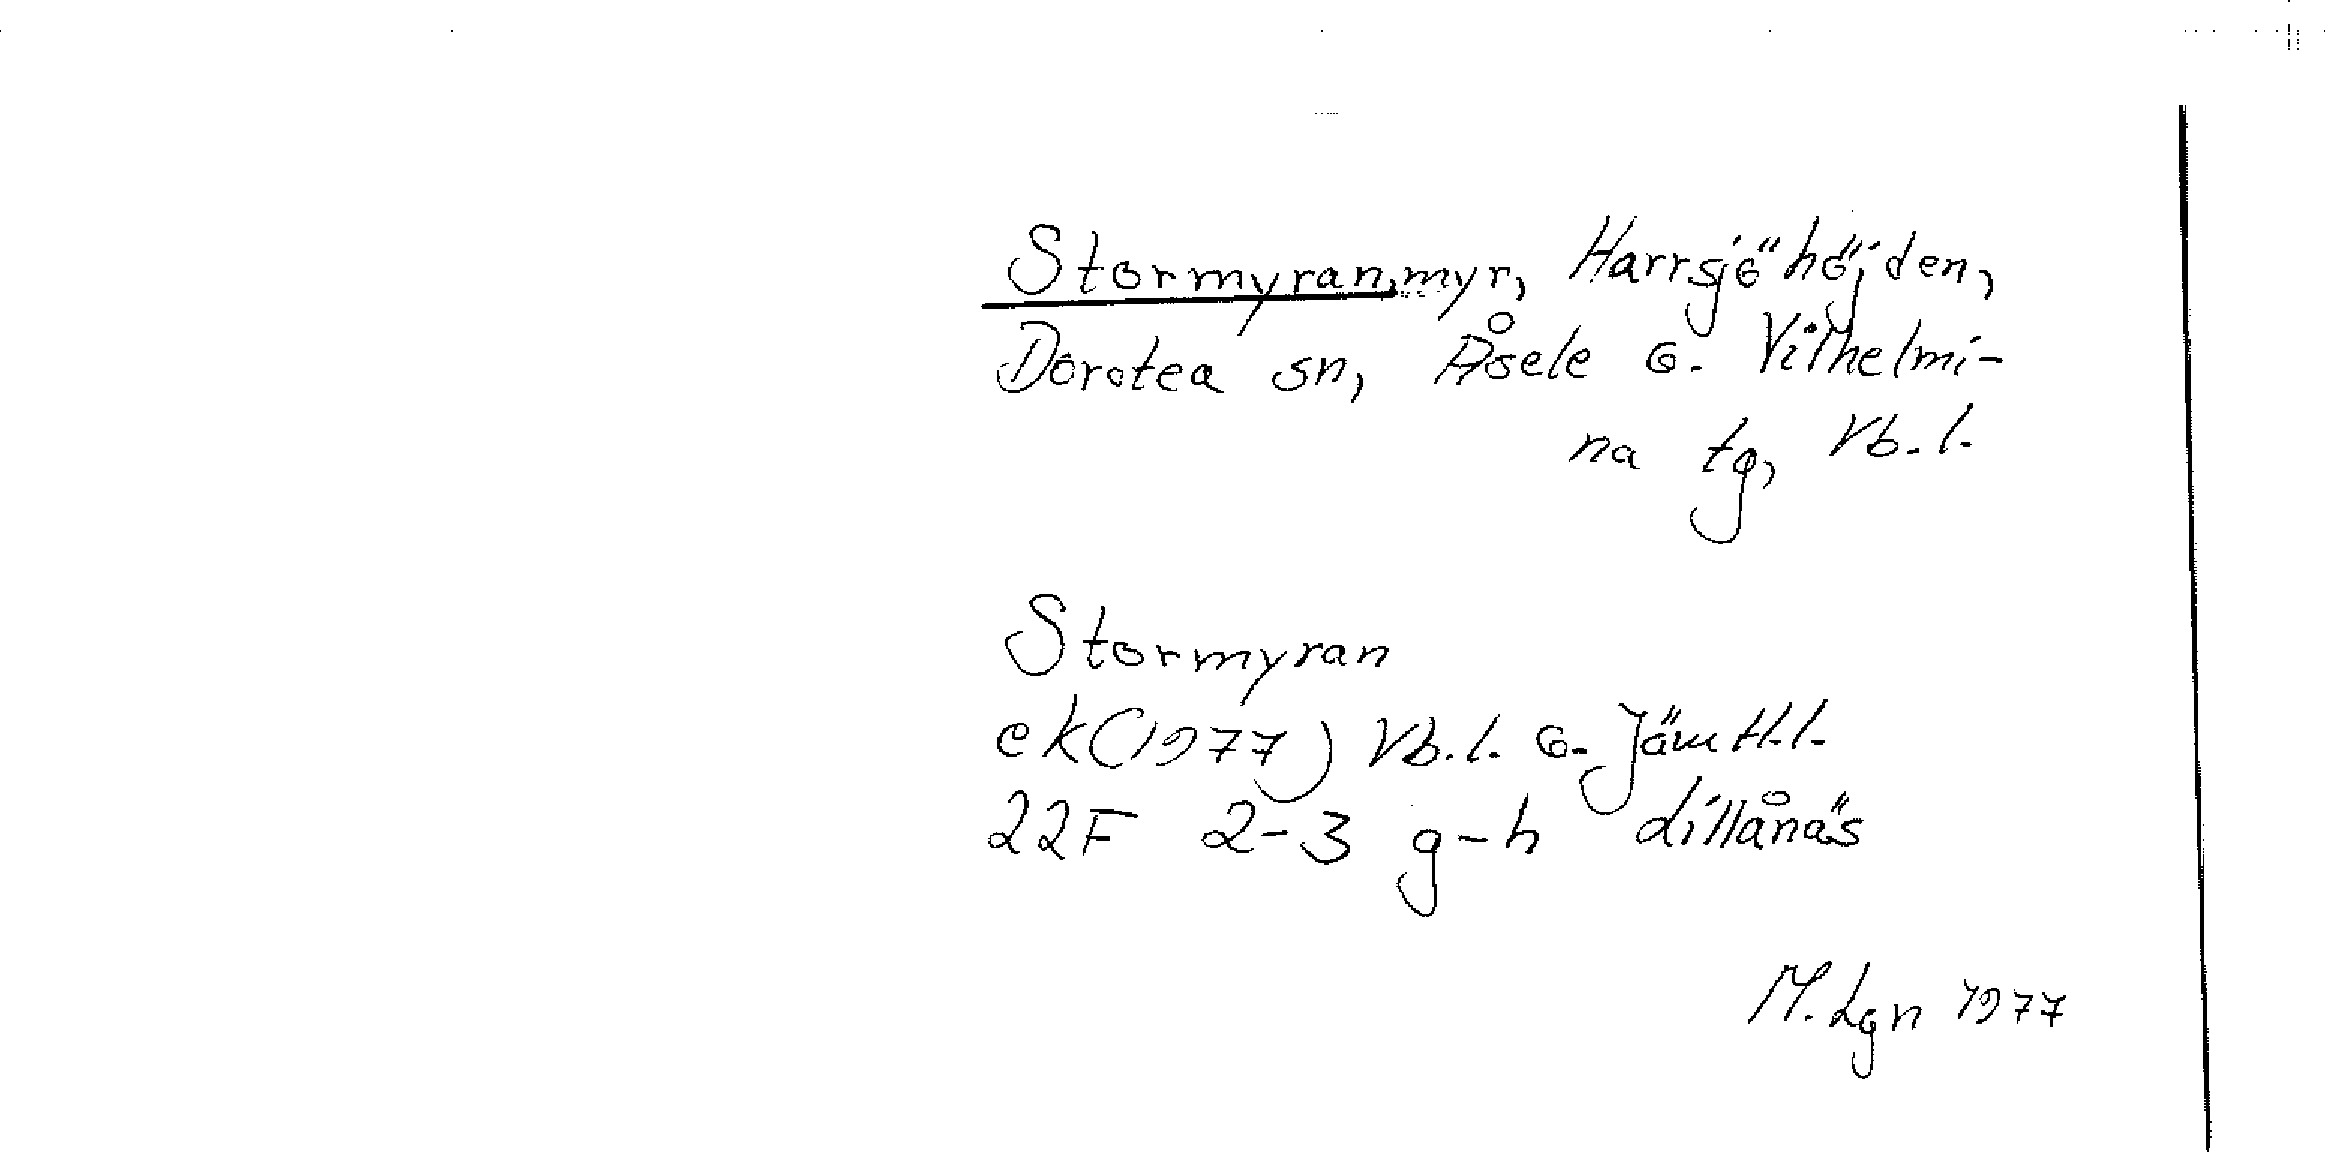 Stormyran, myr, Harrsjöhöjden,
Dorotea sn, Åsele o. Vilhelmi-
na tg, Vb.l.
Stormyran
ek (1977) Vb.l. o. Jämtl.l.
22F 2-3 g-h Lillånäs
M. Lgn 1977